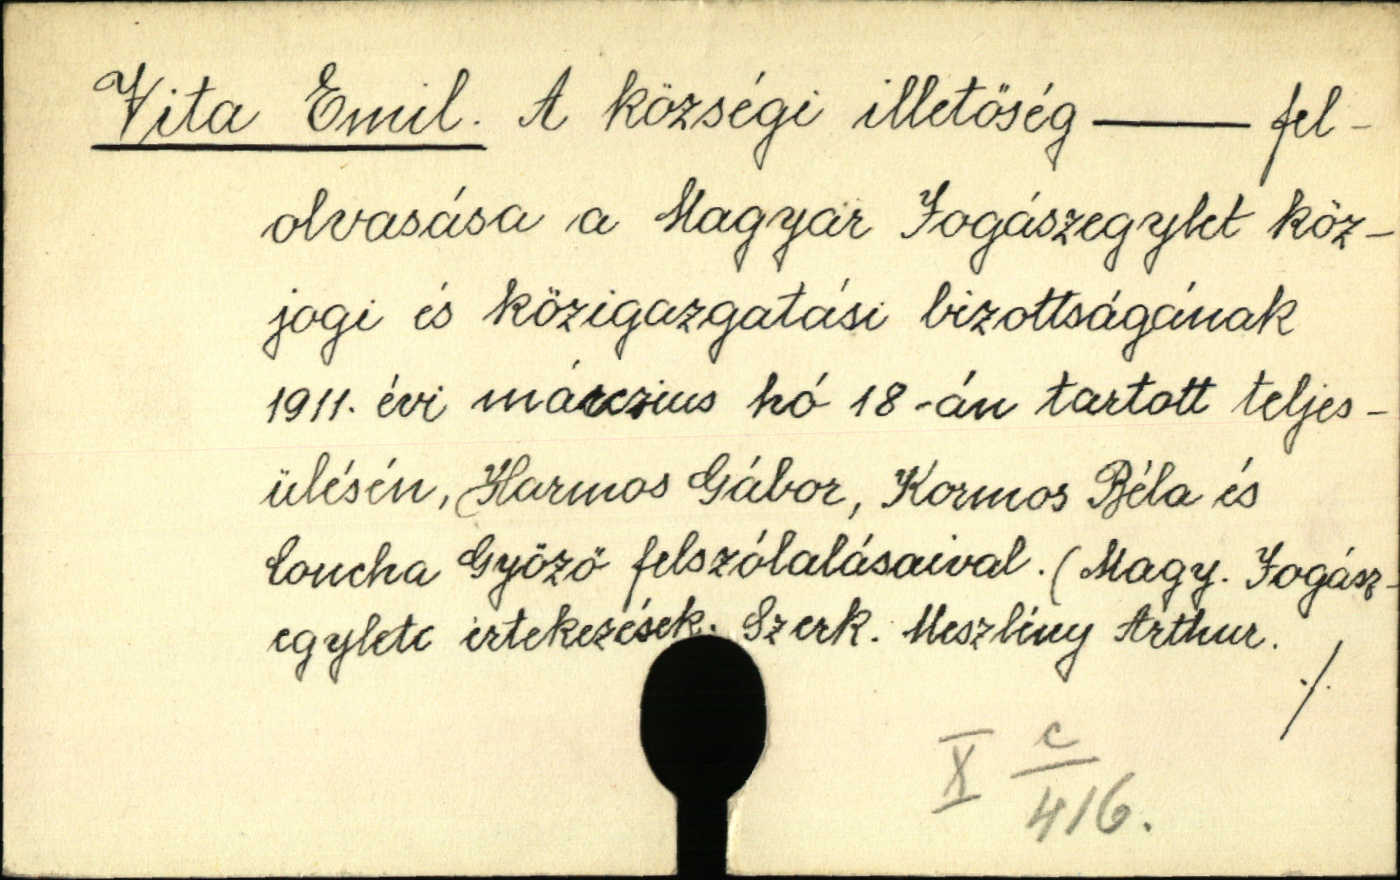 Vita Emil. A községi illetőség —— fel-
olvasása a Magyar Jogászegylet köz-
jogi és közigazgatási bizottságának
1911. évi márczius hó 18-án tartott teljes-
ülésén, Harmos Gábor, Kormos Béla és
Concha Győző felszólalásaival. (Magy. Jogász-
egyleti értekezések. Szerk. Meszlény Arthur.
./.
X c/416.